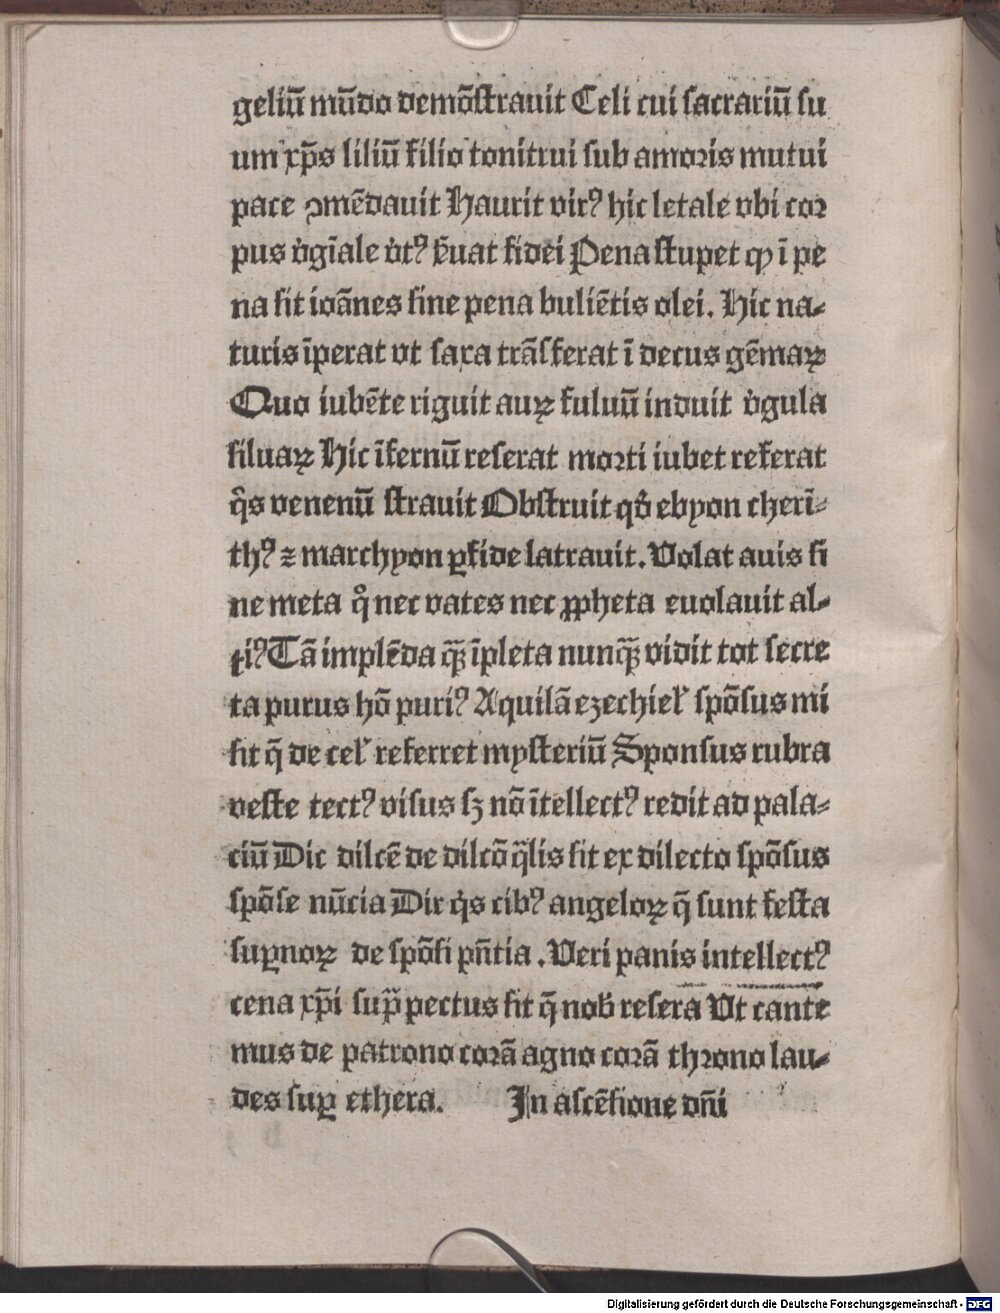 geliū mūdo demōstrauit Celi cui sacrariū su
um xp̄s liliū filio tonitrui sub amoris mutui
pace ꝯmēdauit Haurit virꝰ hic letale vbi cor
pus v̓gīale v̓tꝰ ẜuat fidei Pena stupet ꝙ ī pe
na sit ioānes sine pena buliētis olei. Hic na⸗
turis īperat vt saxa trāsferat ī decus gēmaꝝ
Quo iubēte riguit auꝝ fuluū induit v̓gula
siluaꝝ Hic īfernū reserat morti iubet referat
q̄s venenū strauit Obstruit qd̓ ebyon cherī⸗
thꝰ ⁊ marchyon ꝑfide latrauit. Volat auis si
ne meta qͦ nec vates nec ꝓpheta euolauit al⸗
tiꝰ Tā implēda qꝫ̄ īpleta nunqꝫ̄ vidit tot secre
ta purus hō puriꝰ Aquilā ezechiel̓ spōsus mi
sit q̄ de cel̓ referret mysteriū Sponsus rubra
veste tectꝰ visus sꝫ nō ītellectꝰ redit ad pala⸗
ciū Dic dilcē de dilcō q̄lis sit ex dilecto spōsus
spōse nūcia Dic q̇s cibꝰ angeloꝝ q̄ sunt festa
suꝑnoꝝ de spōsi pn̄tia. Veri panis intellectꝰ
cena xp̄i sup̄ pectus sit q̄ nob̓ resera Vt cante
mus de patrono corā agno corā throno lau⸗
des suꝑ ethera. In ascēsione dn̄i
Digitalisierung gefördert durch die Deutsche Forschungsgemeinschaft - DFG